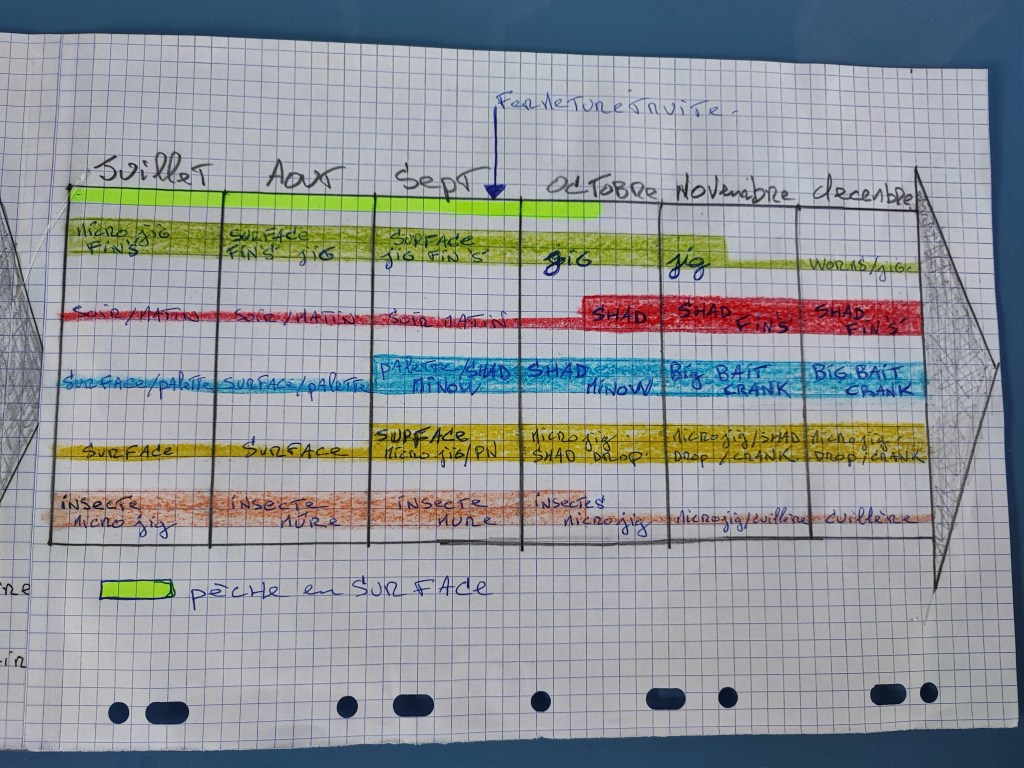 Fermeture truite.
Juillet Aout Sept Octobre Novembre decembre
Micro jig
FINS
SURFACE
FINS' jiG
SURFACE
jiG FIN'S'
giG
jig
WORMS/jiG
Soir/MATIN
Soir/MATIN
Soir MATIN
SHAD
SHAD
FIN'S
SHAD
FIN'S'
SURFACE/pAlette
SURFACE/pAlette
pAlette/SHAD
MiNOW
SHAD
MiNOW
Big BAIT
CRANK
BiG BAiT
CRANK
SURFACE
SURFACE
SURFACE
Micro jiG/PN
Micro jig
SHAD DROP
Micro jig/SHAD
Drop/CRANK
Micro jig
Drop/CRANK
iNSecte
Micro jig
iNSecte
MÛRe
iNSecTe
MÛRe
iNSecTes
Micro jig
Microjig/cuillère
cuillère
pêche en SURFACE
ne
in